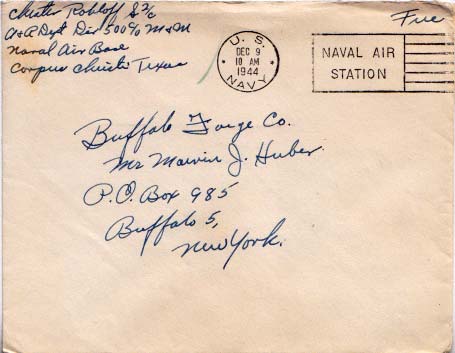 Chester Robloff S2/c
A+R Dept Div 500 % M+M
Naval Air Base
Corpus Christi Texas
Free
U. S.
DEC 9
10 AM
1944
NAVY
NAVAL AIR
STATION
Buffalo Forge Co.
Mr Marvin J. Huber.
P.O. Box 985
Buffalo 5,
New York.